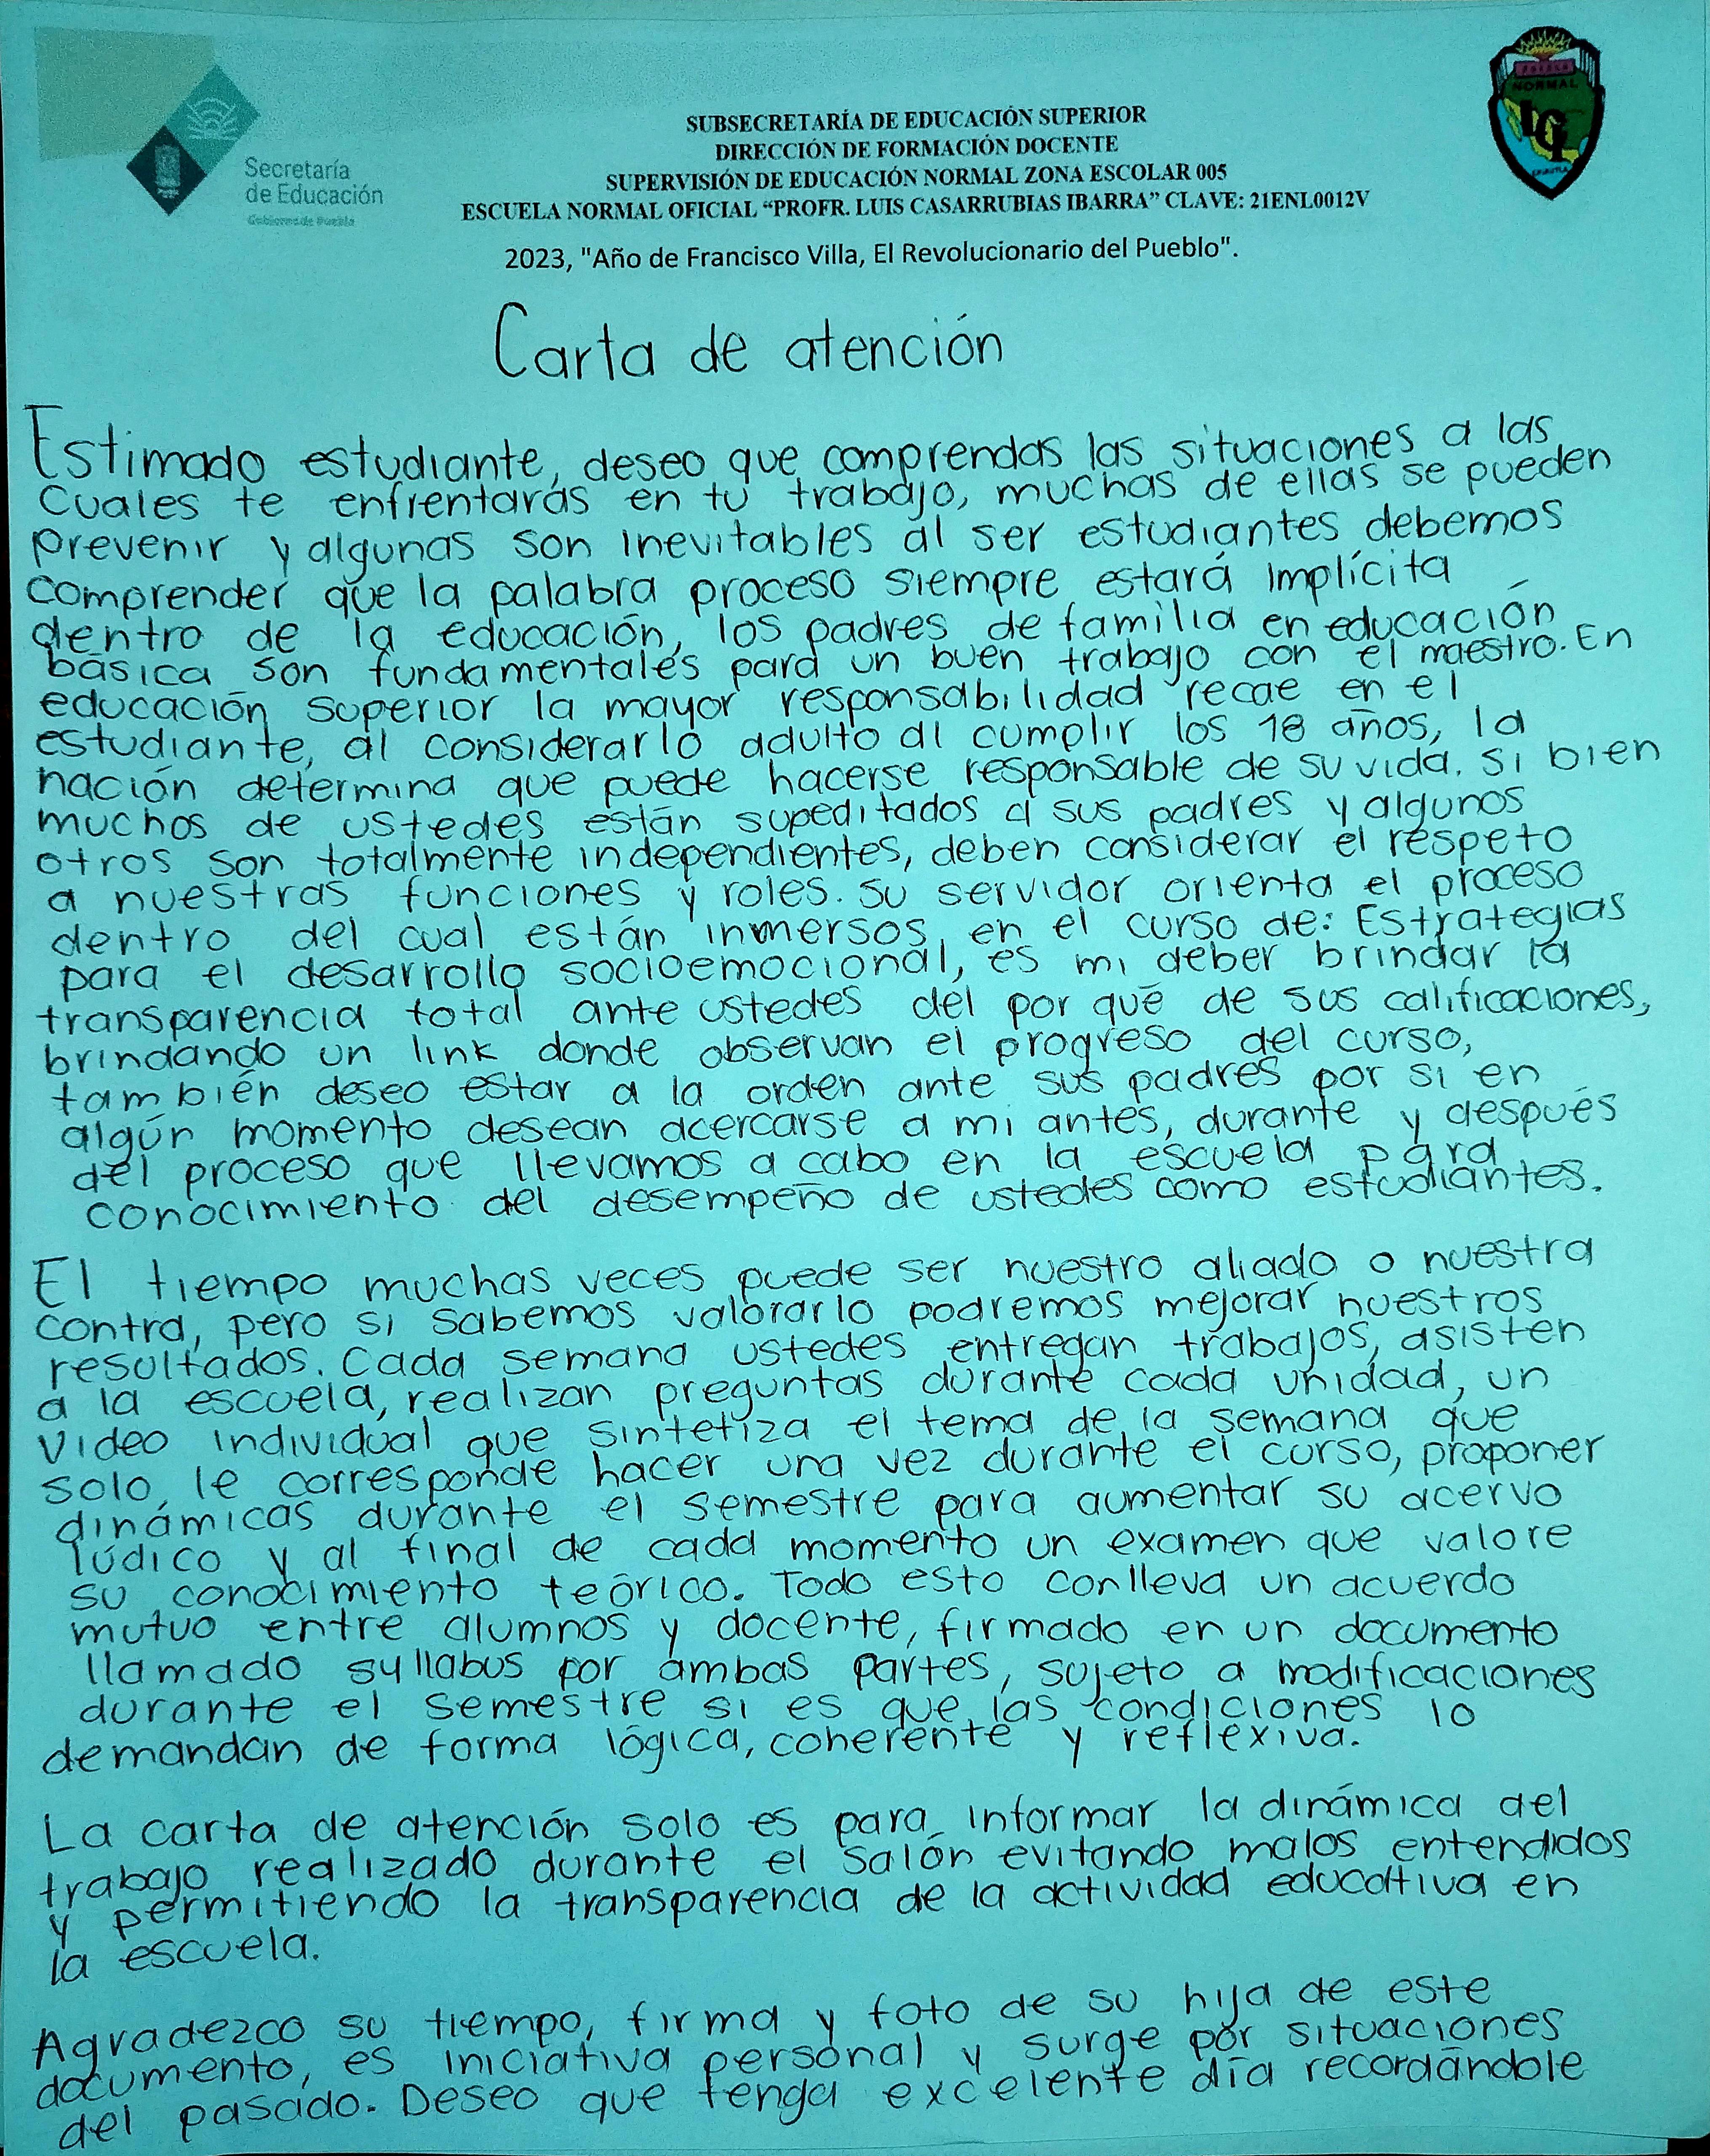 Secretaría
de Educación
Gobierno de Puebla
SUBSECRETARÍA DE EDUCACIÓN SUPERIOR
DIRECCIÓN DE FORMACIÓN DOCENTE
SUPERVISIÓN DE EDUCACIÓN NORMAL ZONA ESCOLAR 005
ESCUELA NORMAL OFICIAL “PROFR. LUIS CASARRUBIAS IBARRA” CLAVE: 21ENL0012V
2023, "Año de Francisco Villa, El Revolucionario del Pueblo".
NORMAL
Carta de atención
Estimado estudiante, deseo que comprendas las situaciones a las
cuales te enfrentarás en tu trabajo, muchas de ellas se pueden
prevenir y algunas son inevitables al ser estudiantes debemos
comprender que la palabra proceso siempre estará implícita
dentro de la educación, los padres de familia en educación
básica son fundamentales para un buen trabajo con el maestro. En
educación superior la mayor responsabilidad recae en el
estudiante, al considerarlo adulto al cumplir los 18 años, la
nación determina que puede hacerse responsable de su vida. Si bien
muchos de ustedes están supeditados a sus padres y algunos
otros son totalmente independientes, deben considerar el respeto
a nuestras funciones y roles. Su servidor orienta el proceso
dentro del cual están inmersos, en el curso de: Estrategias
para el desarrollo socioemocional, es mi deber brindar la
transparencia total ante ustedes del por qué de sus calificaciones,
brindando un link donde observan el progreso del curso,
también deseo estar a la orden ante sus padres por si en
algún momento desean acercarse a mi antes, durante y después
del proceso que llevamos a cabo en la escuela para
conocimiento del desempeño de ustedes como estudiantes.
El tiempo muchas veces puede ser nuestro aliado o nuestra
contra, pero si sabemos valorarlo podremos mejorar nuestros
resultados. Cada semana ustedes entregan trabajos, asisten
a la escuela, realizan preguntas durante cada unidad, un
video individual que sintetiza el tema de la semana que
solo le corresponde hacer una vez durante el curso, proponer
dinámicas durante el semestre para aumentar su acervo
lúdico y al final de cada momento un examen que valore
su conocimiento teórico. Todo esto conlleva un acuerdo
mutuo entre alumnos y docente, firmado en un documento
llamado syllabus por ambas partes, sujeto a modificaciones
durante el semestre si es que las condiciones lo
demandan de forma lógica, coherente y reflexiva.
La carta de atención solo es para informar la dinámica del
trabajo realizado durante el salón evitando malos entendidos
y permitiendo la transparencia de la actividad educativa en
la escuela.
Agradezco su tiempo, firma y foto de su hija de este
documento, es iniciativa personal y surge por situaciones
del pasado. Deseo que tenga excelente día recordándole